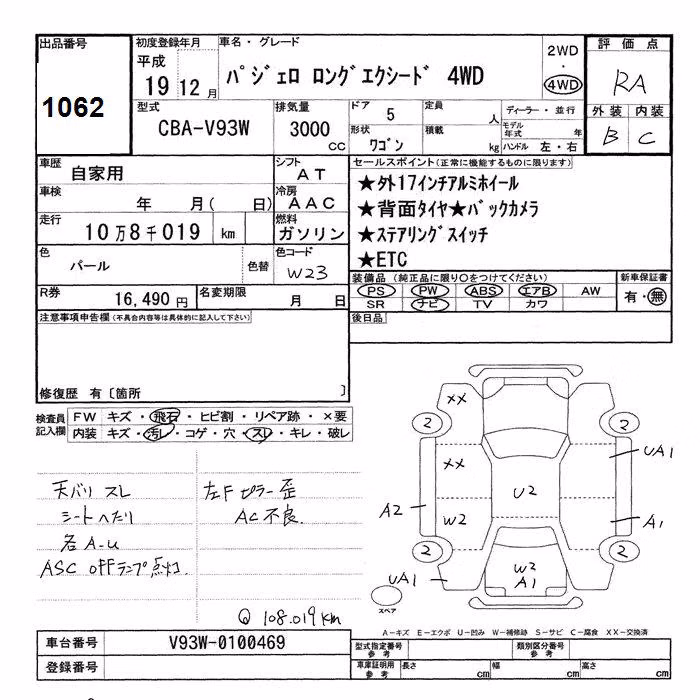 出品番号
1062
初度登録年月
平成
19 12 月
車名・グレード
パジェロ ロングエクシード 4WD
2WD
・
4WD
評価点
RA
外装 内装
B C
型式
CBA-V93W
排気量
3000
CC
ドア
5
形状
ワゴン
定員
人
積載
kg
ディーラー・並行
モデル年式 年
ハンドル 左・右
車歴
自家用
シフト
AT
車検
年 月( 日)
冷房
AAC
走行
10万8千019 km
燃料
ガソリン
色
パール
色替
色コード
W23
R券
16,490 円
名変期限
月 日
セールスポイント(正常に機能するものに限ります)
★外17インチアルミホイール
★背面タイヤ★バックカメラ
★ステアリングスイッチ
★ETC
装備品 (純正品に限り○をつけてください)
PS PW ABS エアB AW
SR ナビ TV カワ
新車保証書
有・無
後日品
注意事項申告欄(不具合内容等は具体的に記入して下さい)
修復歴 有〔箇所 〕
検査員記入欄
FW キズ・飛石・ヒビ割・リペア跡・×要
内装 キズ・汚レ・コゲ・穴・スレ・キレ・破レ
天バリ スレ
シートへたり
各A-U
ASC OFFランプ点灯
左Fピラー歪
AC不良
Q 108.019km
XX
2
2
XX
UA1
U2
A2
W2
A1
2
2
W2
A1
UA1
スペア
A-キズ E-エクボ U-凹み W-補修跡 S-サビ C-腐食 XX-交換済
車台番号
V93W-0100469
登録番号
型式指定番号
参考
類別区分番号
参考
車庫証明用
参考
長さ cm
幅 cm
高さ cm